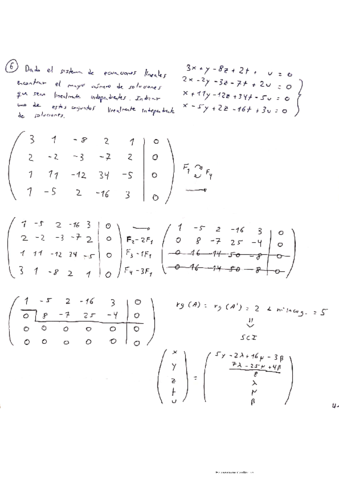 ⑥ Dado el sistema de ecuaciones lineales
encontrar el mayor número de soluciones
que sean linealmente independientes. Indicar
uno de estos conjuntos linealmente independiente
de soluciones.
3x + y - 8z + 2t + u = 0
2x - 2y - 3z - 7t + 2u = 0
x + 11y - 12z + 34t - 5u = 0
x - 5y + 2z - 16t + 3u = 0
3 1 -8 2 1 | 0
2 -2 -3 -7 2 | 0
1 11 -12 34 -5 | 0
1 -5 2 -16 3 | 0
F₁ F₄
1 -5 2 -16 3 | 0
2 -2 -3 -7 2 | 0
1 11 -12 34 -5 | 0
3 1 -8 2 1 | 0
F₂-2F₁
F₃-1F₁
F₄-3F₁
1 -5 2 -16 3 | 0
0 8 -7 25 -4 | 0
0 16 -14 50 -8 | 0
0 16 -14 50 -8 | 0
1 -5 2 -16 3 | 0
0 8 -7 25 -4 | 0
0 0 0 0 0 | 0
0 0 0 0 0 | 0
rg(A) = rg(A') = 2 < nº incog. = 5
SCI
x
y
z
t
u
=
5y - 2λ + 16μ - 3β
7λ - 25μ + 4β
8
λ
μ
β